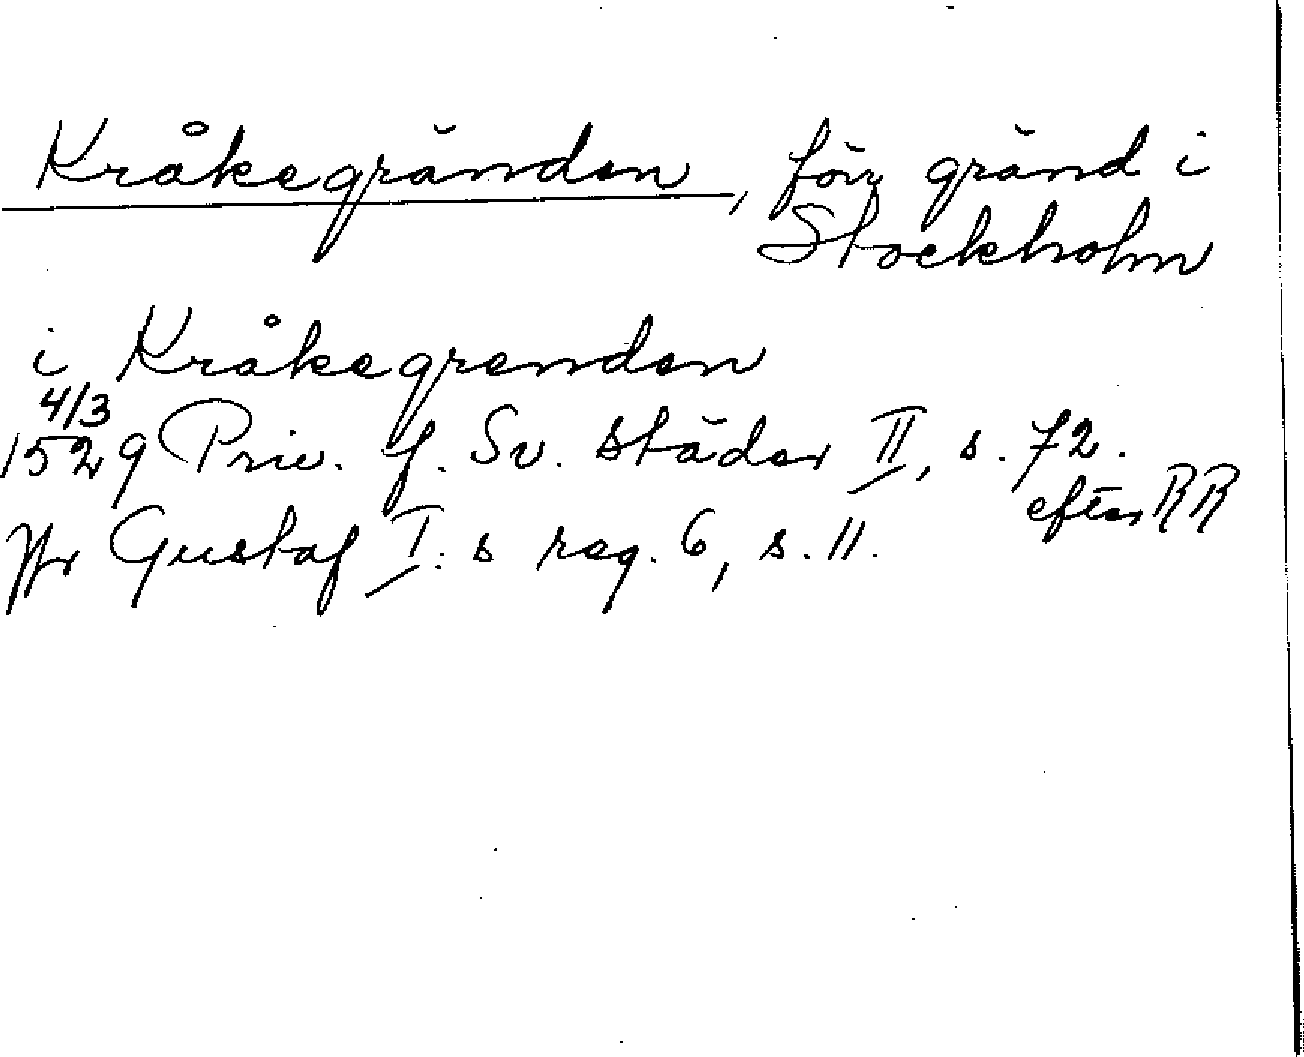 Kråkegränden, förr gränd i
Stockholm
i Kråkegrenden
4/3
1529 Priv. f. Sv. städer II, s. 72.
efter RR
Jfr Gustaf I:s reg. 6, s. 11.